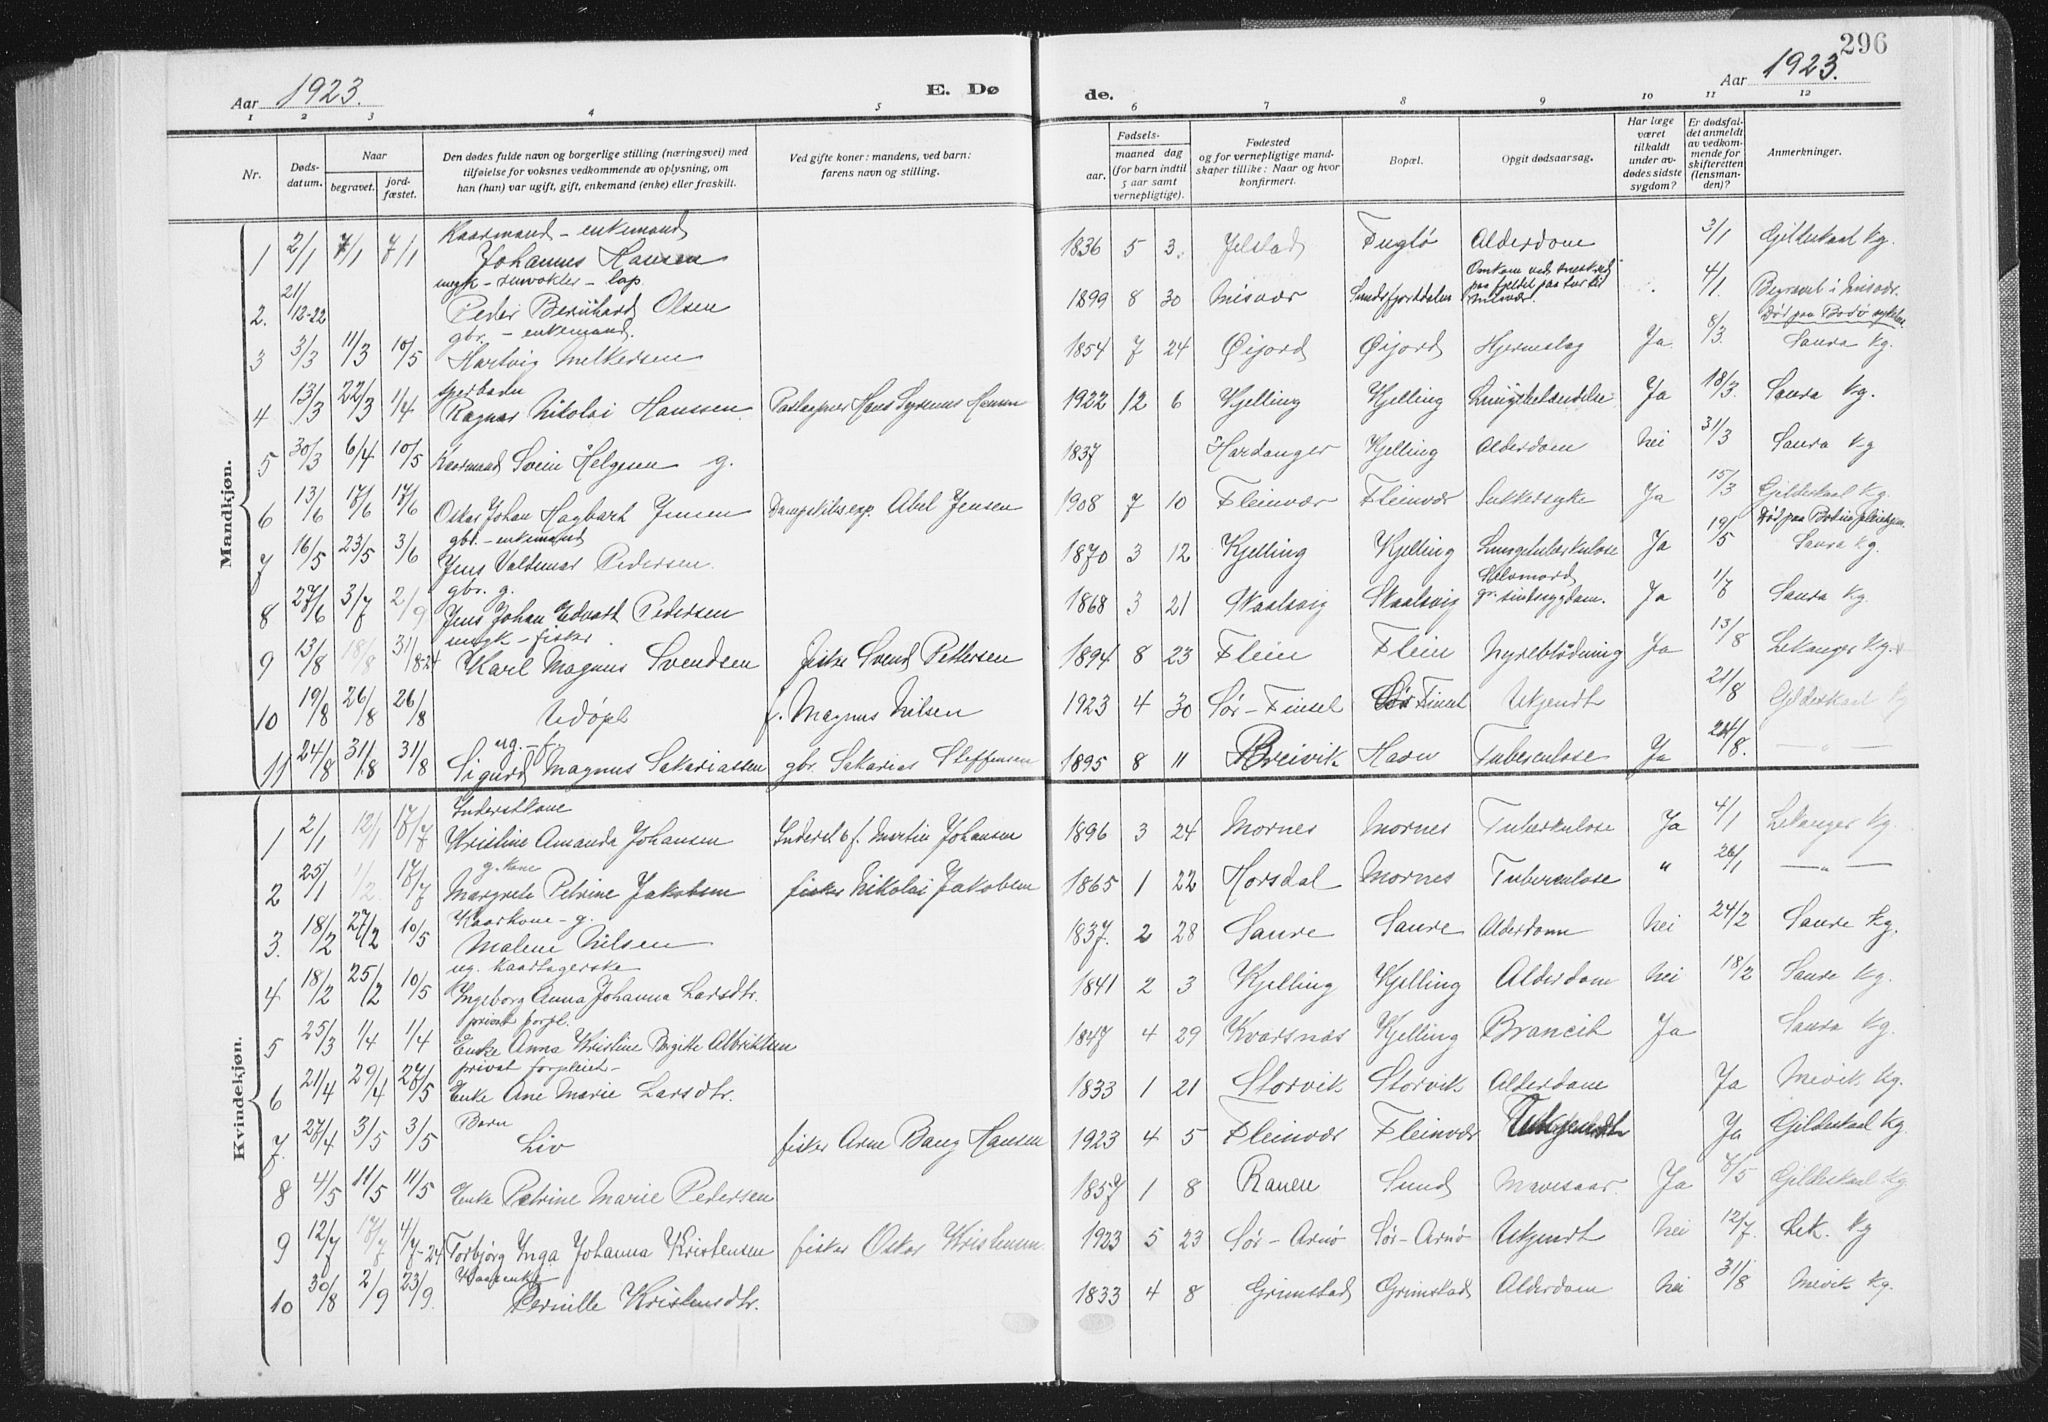 296
Aar 1923. E. Dø de. Aar 1923.
1 2 3 4 5 6 7 8 9 10 11 12
Nr. Døds-datum. Naar begravet. jord-fæstet. Den dødes fulde navn og borgerlige stilling (næringsvei) med tilføielse for voksnes vedkommende av oplysning, om han (hun) var ugift, gift, enkemand (enke) eller fraskilt. Ved gifte koner: mandens, ved barn: farens navn og stilling. Fødsels- aar. maaned dag (for barn indtil 5 aar samt vernepligtige). Fødested og for vernepligtige mandskaper tillike: Naar og hvor konfirmert. Bopæl. Opgit dødsaarsag. Har læge været tilkaldt under avdødes sidste sygdom? Er dødsfaldet anmeldt av vedkommende for skifteretten (lensmanden)? Anmerkninger.
Mandkjøn.
Kaarmand - enkemand
1 2/1 7/1 7/1 Johannes Hansen 1836 5 3. Jelstad Fuglø Alderdom 3/1 Gildeskaal kg.
ungk - - lap
2. 21/12-22 Peder Bernhard Olsen 1899 8 30 Misvær Sundsfjorddalen Omkom ved sneskred paa fjeldet paa tur til Misvær. 4/1. Begravet i Misvær.
gbr. - enkemand. Død paa Bodø sykehus
3 3/3 11/3 10/5 Hartvig Melkersen 1854 7 24 Øijord Øijord Hjerneslag Ja 8/3. Saura kg.
spedbarn
4 13/3 22/3 1/4 Ragnar Nikolai Hanssen Hans Hansen 1922 12 6 Kjelling Kjelling Lungebetændelse Ja 18/3. Saura kg.
5 30/3 6/4 10/5 Kaarmand Svein Helgesen g. 1837 Hardanger Kjelling Alderdom Nei 31/3 Saura kg
6 13/6 17/6 17/6 Oskar Johan Hagbart Jensen Dampskibsexp. Abel Jensen 1908 7 10 Fleinvær Fleinvær Sukkersyke Ja 15/3 Gildeskaal kg.
gbr. - enkemand Død paa Bodin pleiehjem
7 16/5 23/5 3/6 Jens Valdemar Pedersen. 1870 3 12 Kjelling Kjelling Lungetuberkulose Ja 19/5 Saura kg.
gbr. g.
8 27/6 3/7 2/9 Jens Johan Edvart Pedersen 1868 3 21 Skaalsvig Skaalsvig Selvmord gr. sindssygdom. Ja 1/7 Saura kg.
ungk - fisker
9 13/8 18/8 31/8-24 Karl Magnus Svendsen fisker Svend Pettersen 1894 8 23 Flein Flein Nyreblødning Ja 13/8 Lekanger kg.
10 19/8 26/8 26/8 Udøpt f. Magnus Nilsen 1923 4 30 Sør-Finset Sør Finset Ukjendt 21/8 Gildeskaal kg
ug. - f.
11 24/8 31/8 31/8 Sigurd Magnus Sakariassen gbr. Sakarias Steffensen 1895 8 11 Breivik Havn Tuberculose Ja 24/8. — " —
Kvindekjøn.
Inderstkone
1 2/1 12/1 17/7 Kristine Amanda Johansen Inderst & f. Martin Johansen 1896 3 24 Mornes Mornes Tuberkulose Ja 4/1 Lekanger kg
g. kone
2 25/1 1/2 17/7 Margrete Petrine Jakobsen fisker Nikolai Jakobsen 1865 1 22 Horsdal Mornes Tuberculose " 26/1 — " —
Kaarkone - g.
3. 18/2 27/2 10/5 Malene Nilsen 1837. 2 28 Saure Saure Alderdom Nei 24/2 Saure kg.
ug. Kaartagerske
4 18/2 25/2 10/5 Ingeborg Anna Johanna Larsdtr. 1841 2 3 Kjelling Kjelling Alderdom Nei 18/2 Saure kg.
privat forpl.
5 25/3 1/4 1/4 Enke Anna Kristine Birgitte Albriktsen 1847 4 29 Kvarsnæs Kjelling Broncit Ja Saura kg.
privat forpleiet -
6 21/4 29/4 27/5 Enke Ane Marie Larsdtr. 1833 1 21 Storvik Storvik Alderdom Ja Mevik kg.
Barn
7. 27/4 3/5 3/5 Liv fisker Arne Bang Hansen 1923 4 5 Fleinvær Fleinvær Ukjendt Ja Gildeskaal kg.
8 4/5 11/5 11/5 Enke Petrine Marie Pedersen 1857 1 8 Ranen Sund Mavesaar. Ja 8/5 Gildeskaal kg.
9 12/7 17/7 4/7-24 Torbjørg Inga Johanna Kristensen fisker Oskar Kristensen. 1923 5 23 Sør-Arnø Sør-Arnø Ukjendt Nei 12/7. Lek. kg
Kaarenke
10 30/8 2/9 23/9. Pernille Kristensdtr. 1833 4 8 Grimstad Grimstad Alderdom Nei 31/8 Mevik kg.